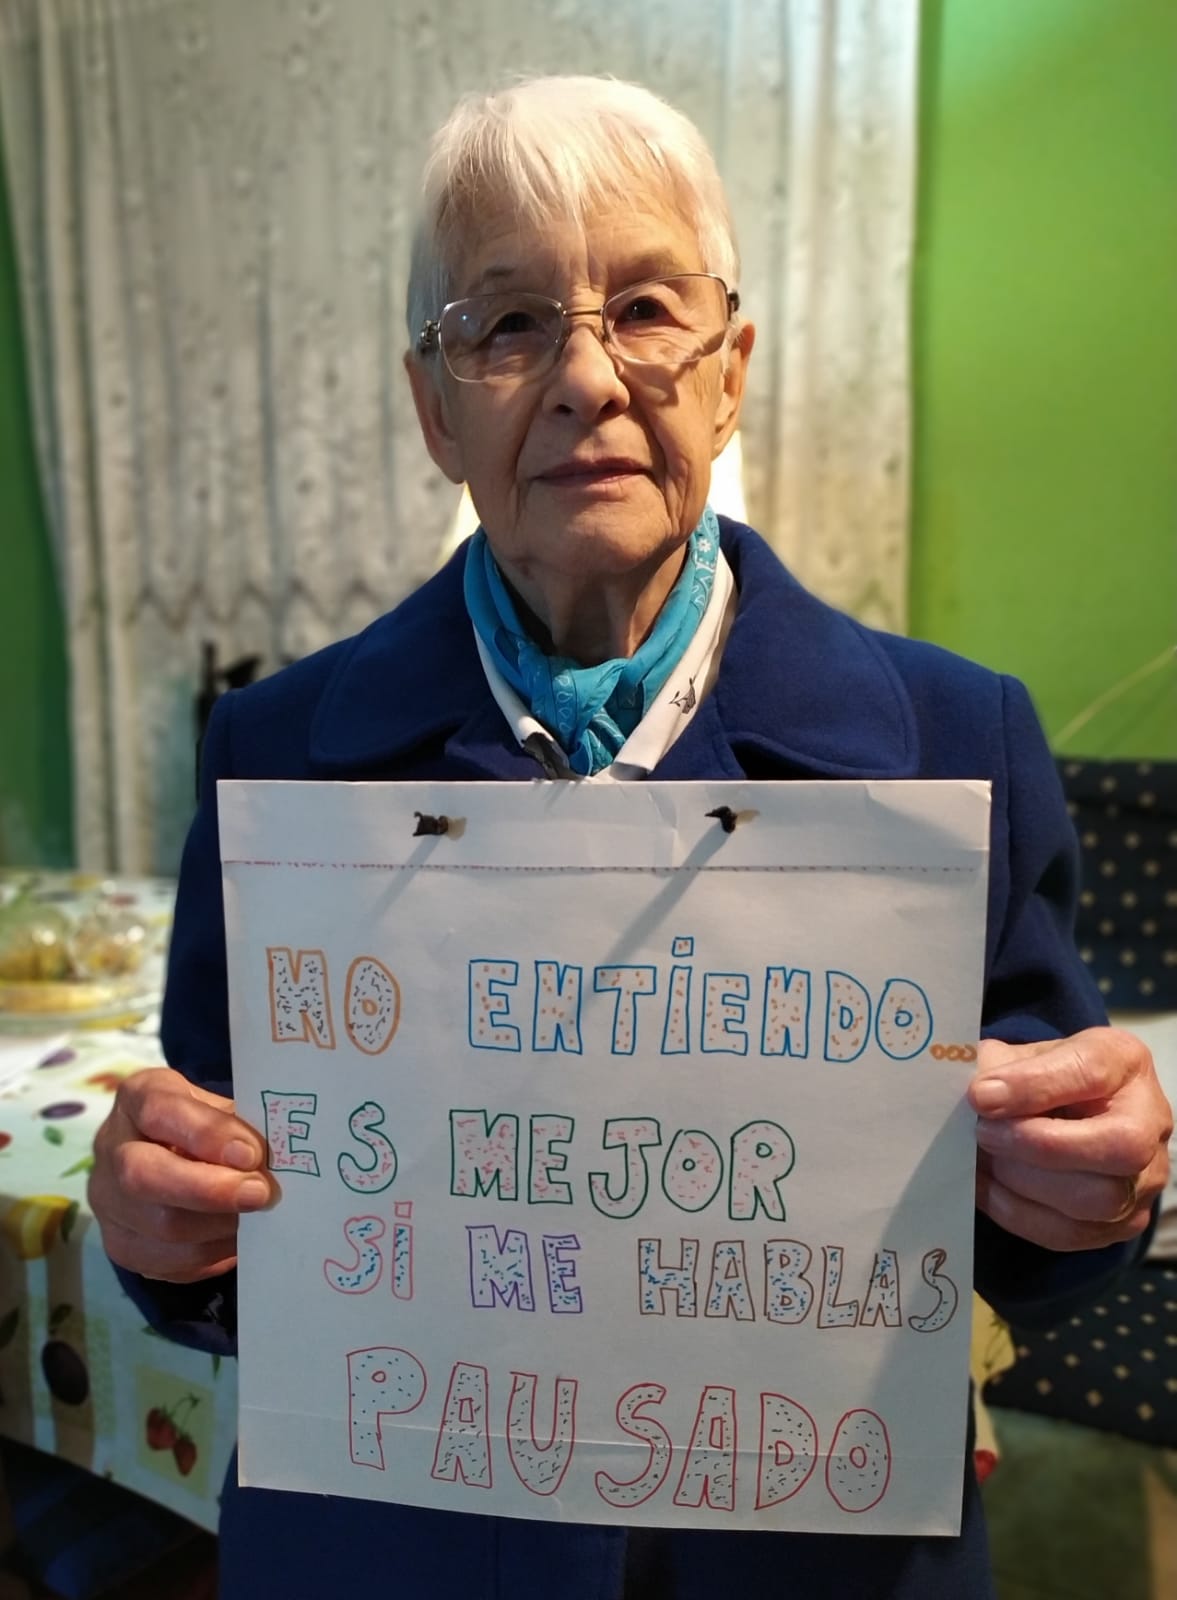 NO ENTIENDO...
ES MEJOR
SI ME HABLAS
PAUSADO